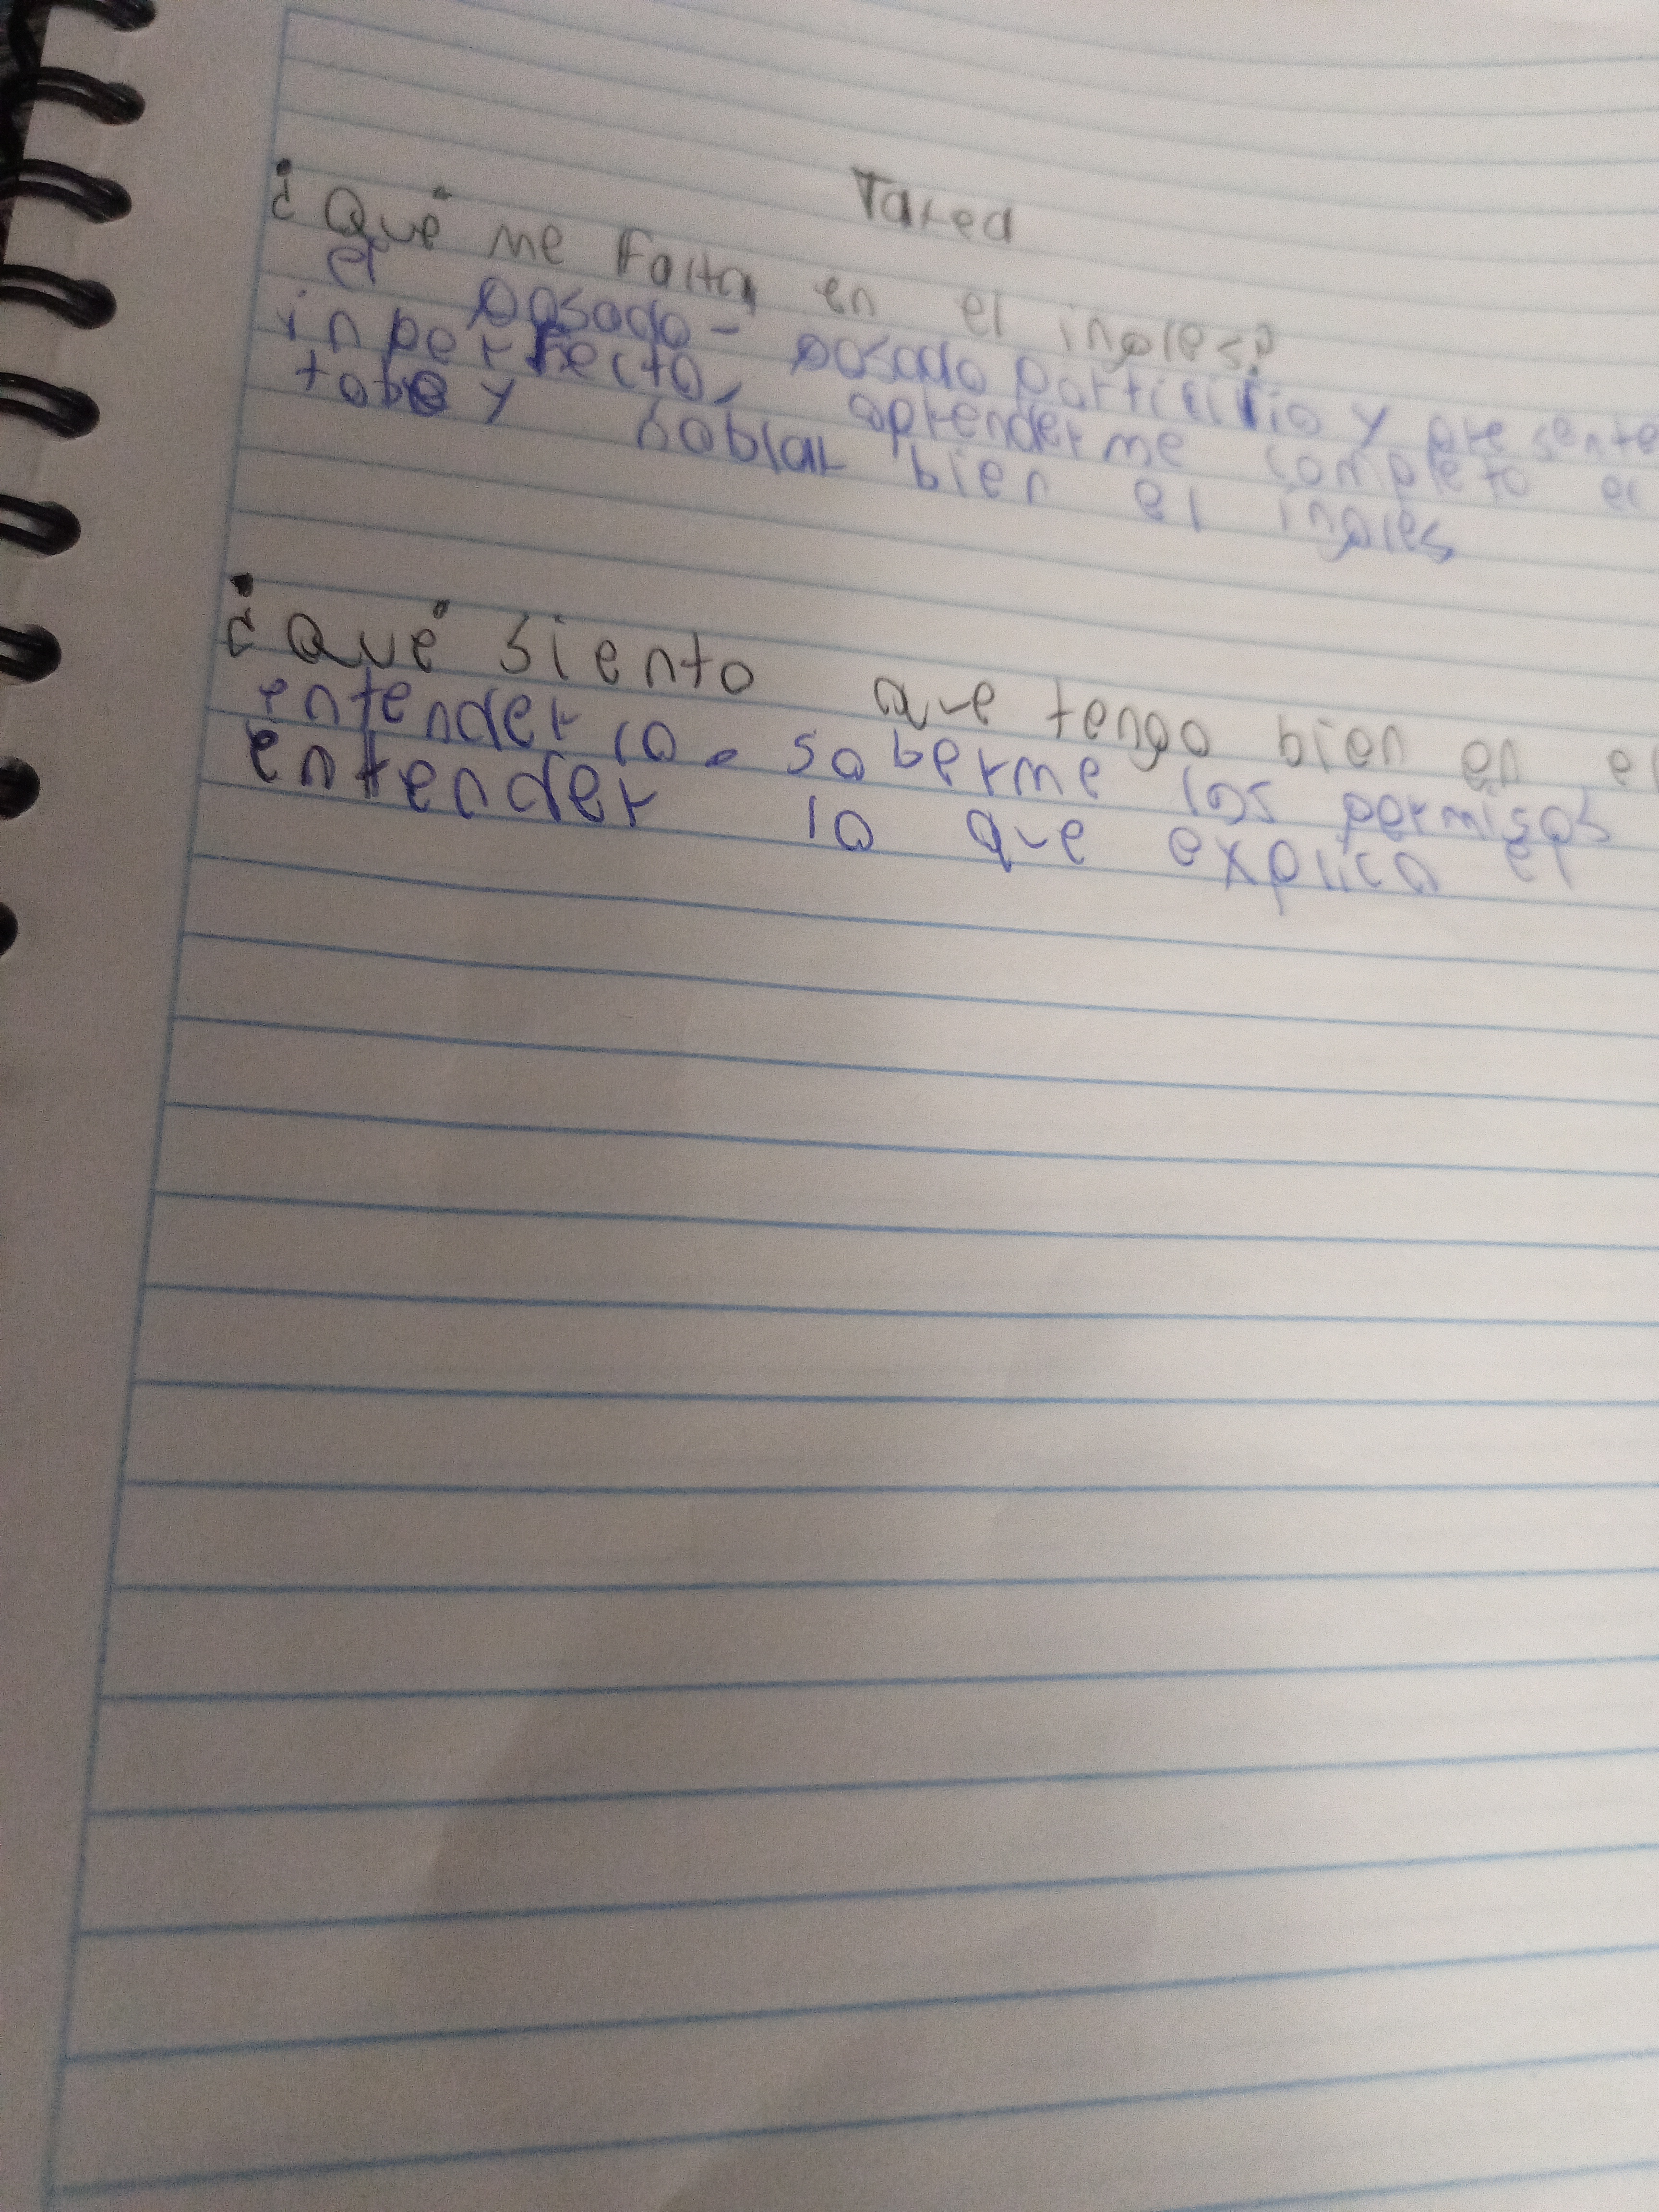 Tarea
¿Qué me Falta en el ingles?
el pasado - pasado participio y presente
inperfecto, aprenderme completo el
tobe y hablar bien el ingles
¿Qué siento que tengo bien en el
entenderlo. saberme los permisos
entender lo que explica el